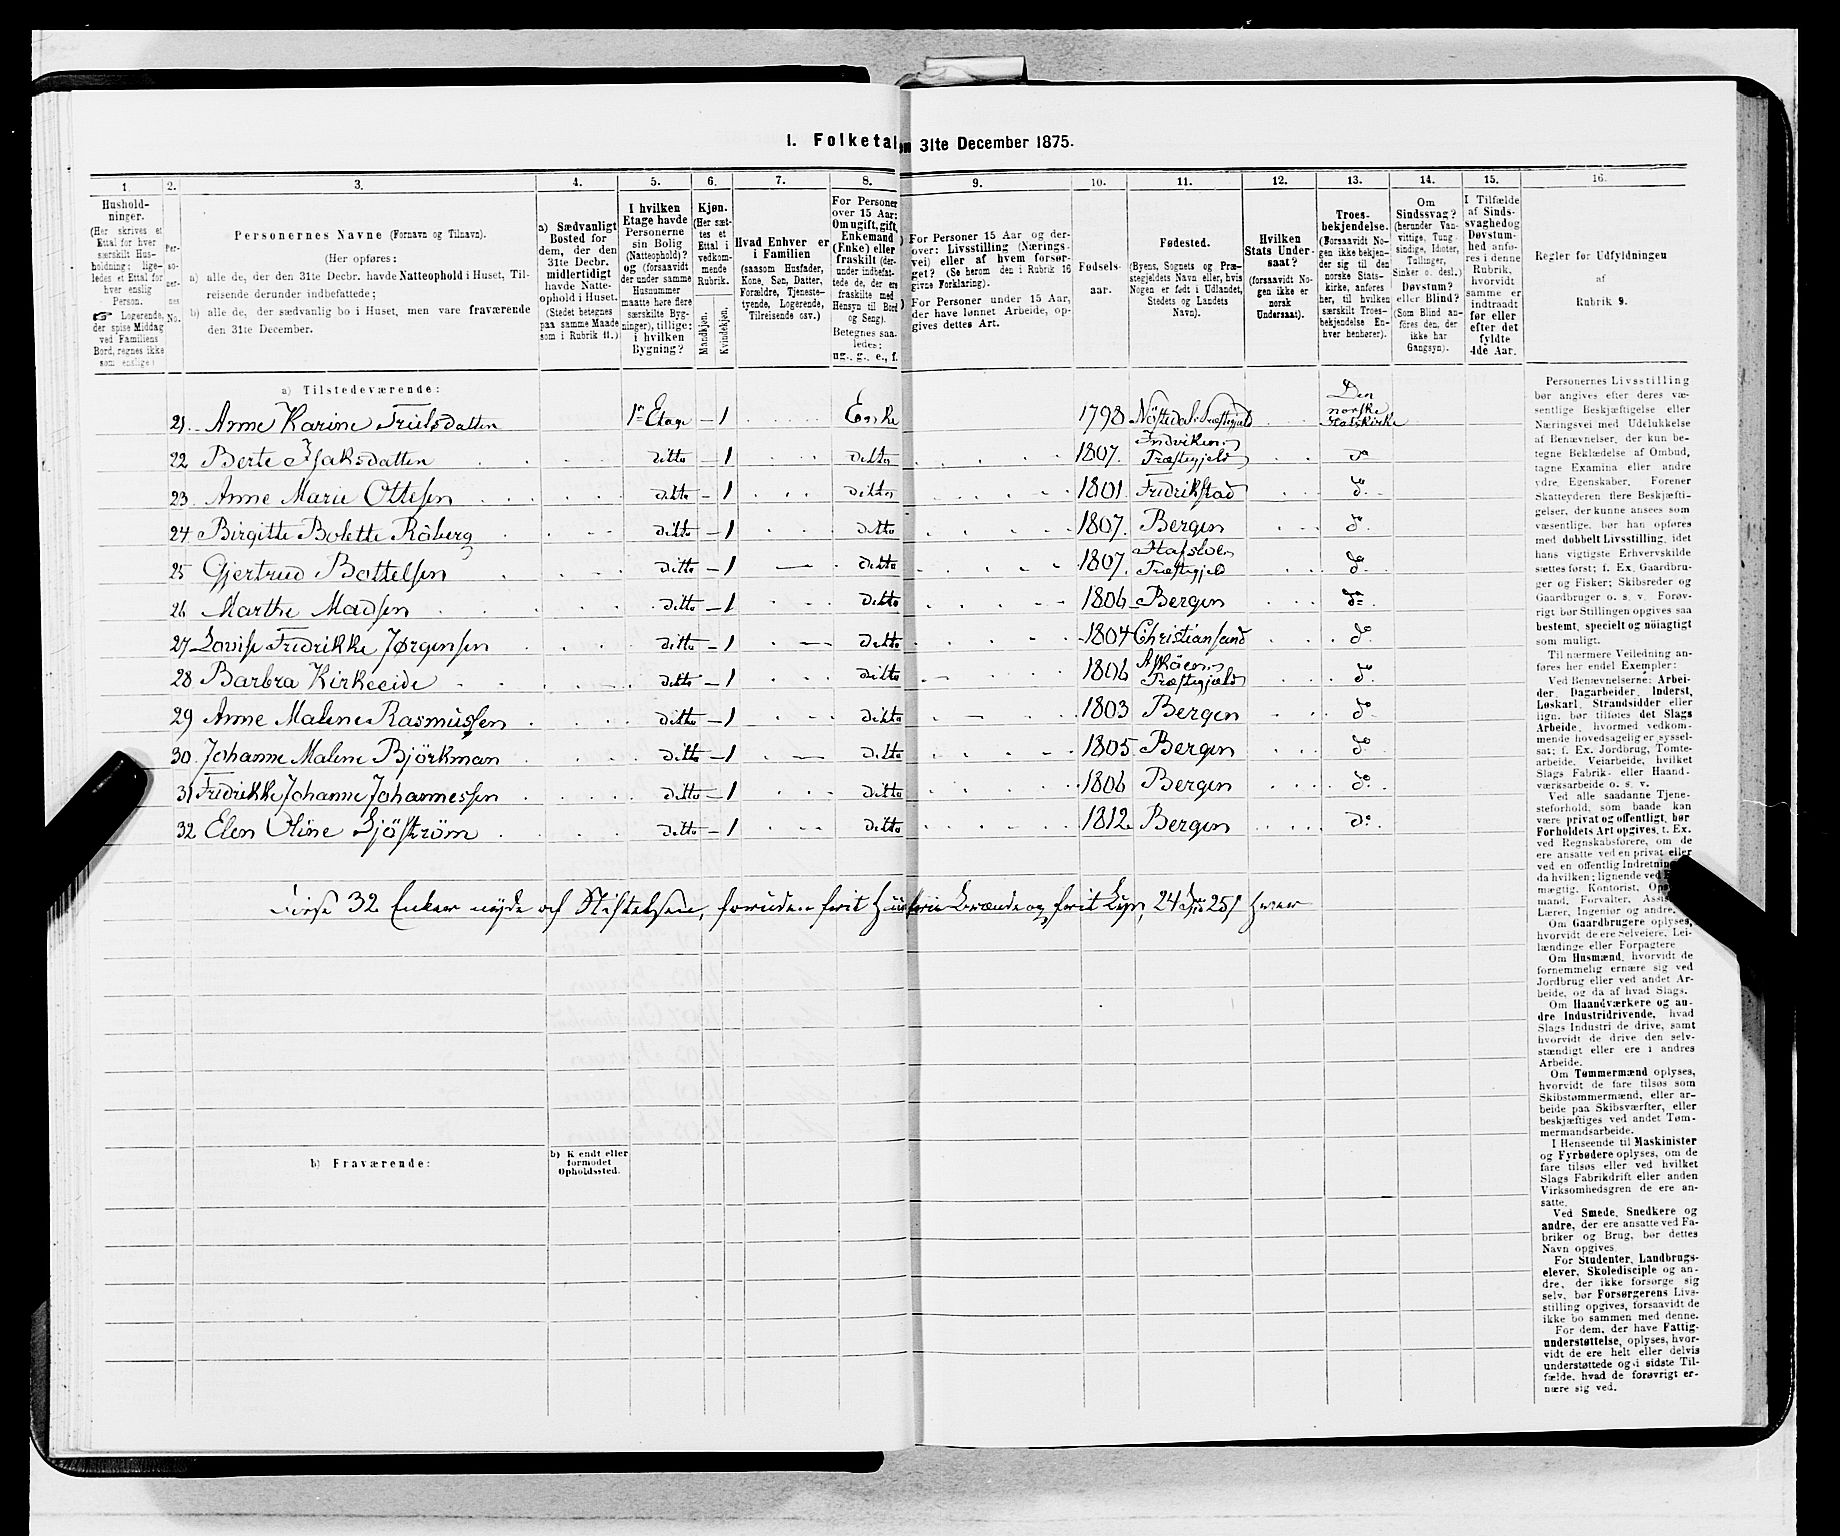 1. Folketal 31te December 1875.
1. 2. 3. 4. 5. 6. 7. 8. 9. 10. 11. 12. 13. 14. 15. 16.
Hushold-
ninger.
(Her skrives et
Ettal for hver
særskilt Hus-
holdning; lige-
ledes et Ettal for
hver enslig
Person.
Logerende,
der spise Middag
ved Familiens
Bord, regnes ikke
som enslige)
Per-
so-
ner-
nes
No.
Personernes Navne (Fornavn og Tilnavn).
(Her opføres:
a) alle de, der den 31te Decbr. havde Natteophold i Huset, Til-
reisende derunder indbefattede;
b) alle de, der sædvanlig bo i Huset, men vare fraværende
den 31te December.
a) Sædvanligt
Bosted for
dem, der den
31te Decbr.
midlertidigt
havde Natte-
ophold i Huset.
(Stedet betegnes
paa samme Maade
som i Rubrik 11.)
I hvilken
Etage havde
Personerne
sin Bolig
(Natteophold)?
og (forsaavidt
der under samme
Husnummer
maatte høre flere
særskilte Byg-
ninger), tillige:
i hvilken
Bygning?
Kjøn.
(Her sæt-
tes et
Ettal i
vedkom-
mende
Rubrik.
Mandkjøn.
Kvindekjøn.
Hvad Enhver er
i Familien
(saasom Husfader,
Kone, Søn, Datter,
Forældre, Tjeneste-
tyende, Logerende,
Tilreisende osv.)
For Personer
over 15 Aar:
Om ugift, gift,
Enkemand
(Enke) eller
fraskilt (der-
under indbefat-
tede de, der ere
fraskilte med
Hensyn til Bord
og Seng).
Betegnes saa-
ledes:
ug., g., e., f.
For Personer 15 Aar og der-
over: Livsstilling (Nærings-
vei) eller af hvem forsør-
get? (Se herom den i Rubrik 16
givne Forklaring).
For Personer under 15 Aar,
der have lønnet Arbeide, op-
gives dettes Art.
Fødsels-
aar.
Fødested.
(Byens, Sognets og Præ-
stegjeldets Navn eller, hvis
Nogen er født i Udlandet,
Stedets og Landets
Navn).
Hvilken
Stats Under-
saat?
(forsaavidt No-
gen ikke er
norsk
Undersaat).
Troes-
bekjendelse.
(Forsaavidt No-
gen ikke bekjen-
der sig til den
norske Stats-
kirke, anføres
her, til hvilken
særskilt Troes-
bekjendelse En-
hver henhører).
Om
Sindssvag?
(herunder Van-
vittige, Tung-
sindige, Idioter,
Tullinger,
Sinker o. desl.)
Døvstum?
eller Blind?
(Som Blind an-
føres den, der
ikke har
Gangsyn).
I Tilfælde
af Sinds-
svaghed og
Døvstum-
hed anfø-
res i denne
Rubrik,
hvorvidt
samme er
indtraadt
før eller
efter det
fyldte
4de Aar.
Regler for Udfyldningen
af
Rubrik 9.
a) Tilstedeværende:
21. Anne Karine Truelsdatter 1ste Etage 1 Enke 1798 Præstegjeld Den norske Statskirke
22 Berte Isaksdatter ditto 1 ditto 1807. Indvikens Præstegjeld do
23 Anne Marie Ottesen ditto 1 ditto 1801. Fredrikstad do
24 Birgitte Bolette Råberg ditto 1 ditto 1807. Bergen do
25 Gjertrud Bottelsen ditto 1 ditto 1807. Hafsloe Præstegjeld do
26 Marthe Madsen ditto 1 ditto 1806 Bergen do
27 Lovise Fredrikke Jørgensen ditto 1 ditto 1804 Christiansand do
28 Barbra Kirkeeide ditto 1 ditto 1806 Askøens Præstegjeld do
29 Anne Malene Rasmussen ditto 1 ditto 1803 Bergen do
30. Johanne Malene Bjørkman ditto 1 ditto 1805. Bergen do
31 Fredrikke Johanne Johannessen ditto 1 ditto 1806 Bergen do
32 Elen Oline Sjöström ditto 1 ditto 1812. Bergen do
Disse 32 Enker nyde af Stiftelsen, foruden frit Huus frie Brænde og frit Lys, 24 25 hver
b) Fraværende:
b) Kjendt eller
formodet
Opholdssted.
Personernes Livsstilling
bør angives efter deres væ-
sentlige Beskjæftigelse eller
Næringsvei med Udelukkelse
af Benævnelser, der kun be-
tegne Beklædelse af Ombud,
tagne Examina eller andre
ydre Egenskaber. Forener
Skatteyderen flere Beskjæfti-
gelser, der kunne ansees som
væsentlige, bør han opføres
med dobbelt Livsstilling, idet
hans vigtigste Erhvervskilde
sættes først; f. Ex. Gaardbru-
ger og Fisker; Skibsreder og
Gaardbruger o. s. v. Forøv-
rigt bør Stillingen opgives saa
bestemt, specielt og nöiagtigt
som muligt.
Til nærmere Veiledning an-
føres her endel Exempler:
Ved Benævnelserne: Arbei-
der, Dagarbeider, Inderst,
Løskarl, Strandsidder eller
lign. bør tilføies det Slags
Arbeide, hvormed vedkom-
mende hovedsagelig er syssel-
sat; f. Ex. Jordbrug, Tomte-
arbeide, Veiarbeide, hvilket
Slags Fabrik- eller Haand-
værksarbeide o. s. v.
Ved alle saadanne Tjene-
steforhold, som baade kan
være privat og offentligt, bør
Forholdets Art opgives, t. Ex.
ved Regnskabsførere, om de
ere ansatte ved en privat eller
ved en offentlig Indretning
da hvilken; lignende ved
mægtig, Kontorist,
mand, Forvalter,
Lærer, Ingeniør og andre.
Om Gaardbrugere oplyses,
hvorvidt de ere Selveiere, Lei-
lændinge eller Forpagtere
Om Husmænd, hvorvidt de
fornemmelig ernære sig ved
Jordbrug eller ved andet Ar-
beide, og da af hvad Slags.
Om Haandværkere og an-
dre Industridrivende, hvad
Slags Industri de drive, samt
hvorvidt de drive den selv-
stændigt eller ere i andres
Arbeide.
Om Tømmermænd oplyses,
hvorvidt de fare tilsøs som
Skibstømmermænd, eller ar-
beide paa Skibsværfter, eller
beskjæftiges ved andet Tøm-
mermandsarbeide.
I Henseende til Maskinister
og Fyrbødere oplyses, om de
fare tilsøs eller ved hvilket
Slags Fabrikdrift eller anden
Virksomhedsgren de ere an-
satte.
Ved Smede, Snedkere og
andre, der ere ansatte ved Fa-
briker og Brug, bør dettes
Navn opgives.
For Studenter, Landbrugs-
elever, Skoledisciple og an-
dre, der ikke forsørge sig
selv, bør Forsørgerens Livs-
stilling opgives, forsaavidt de
ikke bo sammen med denne.
For dem, der have Fattig-
understøttelse, oplyses, hvor-
vidt de ere helt eller delvis
understøttede og i sidste Til-
fælde, hvad de forøvrigt er-
nære sig ved.